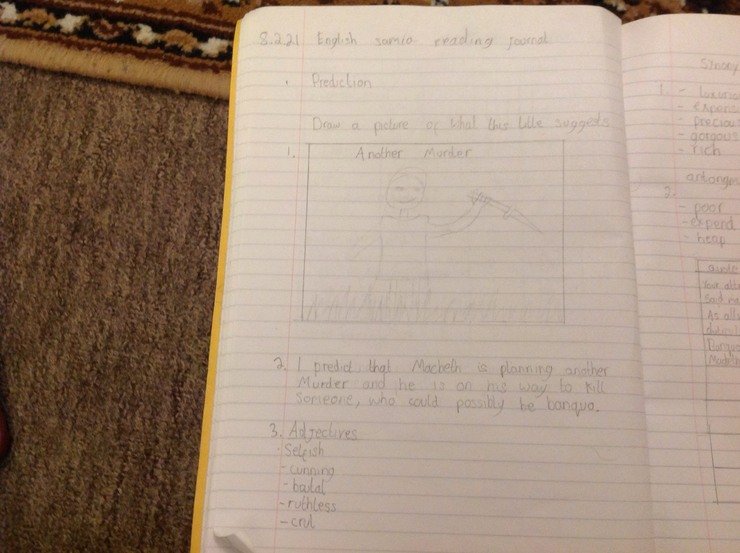 8.2.21 English samia reading journal
Prediction
Draw a picture of what this title suggests
1. Another Murder
2. I predict that Macbeth is planning another
Murder and he is on his way to kill
Someone, who could possibly be banquo.
3. Adjectives
- Selfish
- cunning
- ruthless
- crul
1. - luxurio
- precious
- gorgous
- rich
2.
- poor
- expend
- heap
Said
As all
Banquo